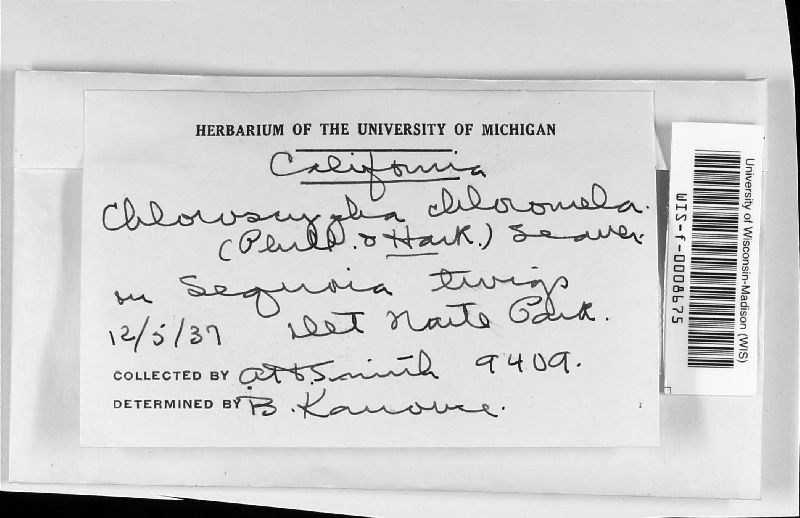 HERBARIUM OF THE UNIVERSITY OF MICHIGAN
California
Chloroscypha chloromela.
(Phill. & Hark.) Seaver
on Sequoia twigs
12/5/37 Del Norte Park.
COLLECTED BY A H Smith 9409.
DETERMINED BY B. Kanouse.
University of Wisconsin-Madison (WIS)
WIS-f-0008675